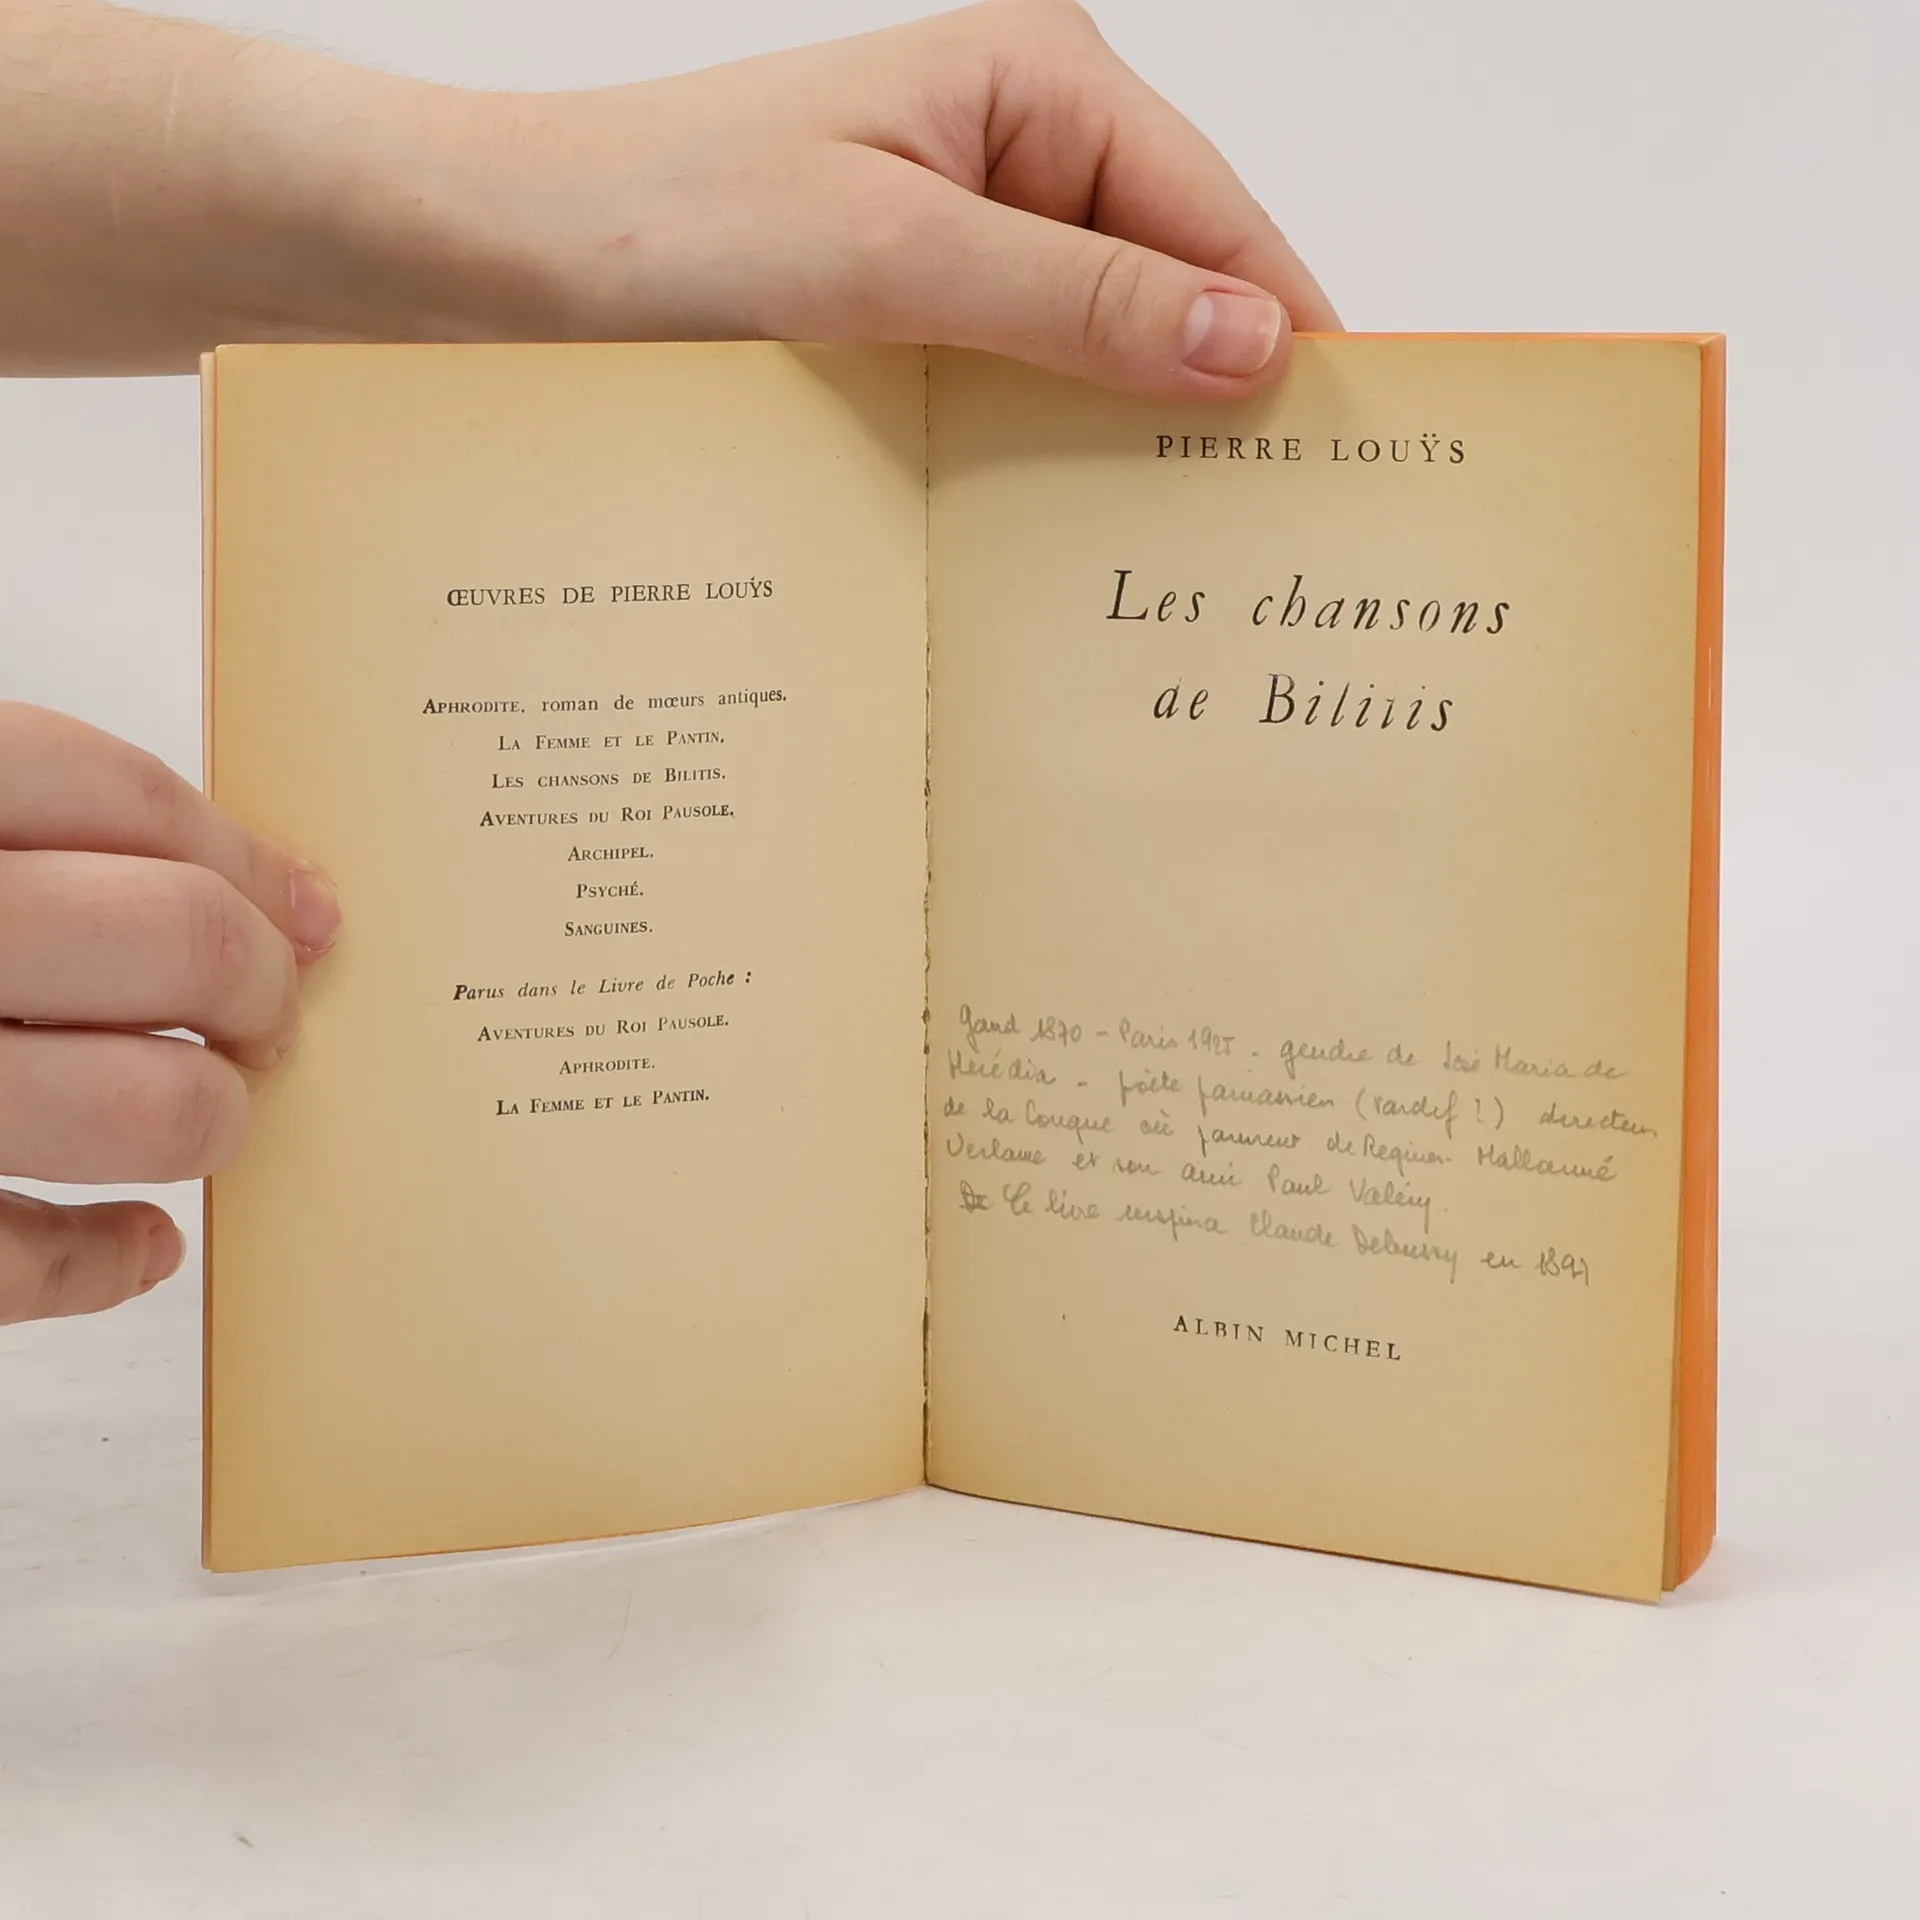 ŒUVRES DE PIERRE LOUŸS
APHRODITE, roman de mœurs antiques.
LA FEMME ET LE PANTIN.
LES CHANSONS DE BILITIS.
AVENTURES DU ROI PAUSOLE.
ARCHIPEL.
PSYCHÉ.
SANGUINES.
Parus dans le Livre de Poche :
AVENTURES DU ROI PAUSOLE.
APHRODITE.
LA FEMME ET LE PANTIN.
PIERRE LOUŸS
Les chansons
de Bilitis
Gand 1870 - Paris 1925 - gendre de José Maria de
Hérédia - poète parnassien ( ?) directeur
de la Conque où parurent de Regnier - Mallarmé
Verlaine et son ami Paul Valéry.
Ce livre inspira Claude Debussy en 1897
ALBIN MICHEL